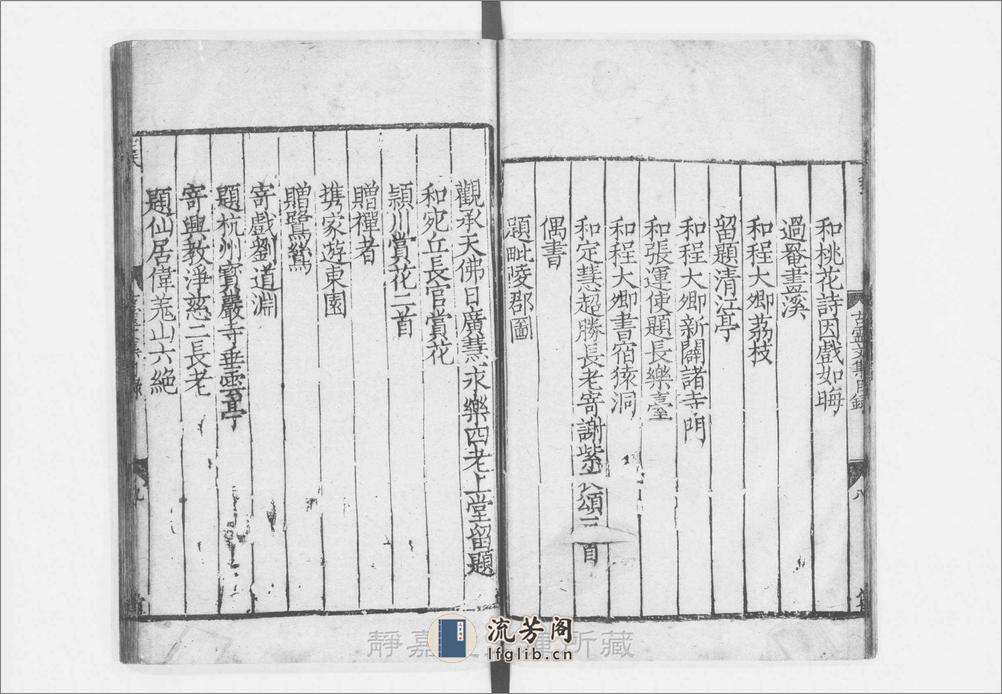 和桃花詩因戲如晦
過罨畫溪
和程大卿荔枝
留題清江亭
和程大卿新闢諸寺門
和張運使題長樂臺
和程大卿書宿猿洞
和定慧超勝長老寄謝紫 頌三首
偶書
題毗陵郡圖
古靈文集目錄
八
觀承天佛日廣慧永樂四老上堂留題
和宛丘長官賞花
潁川賞花二首
贈禪者
携家遊東園
贈鷺鷥
寄戲劉道淵
題杭州寳嚴寺垂雲亭
寄興教淨慈二長老
題仙居偉羗山六絶
九
靜嘉 所藏
流芳阁
lfglib.cn